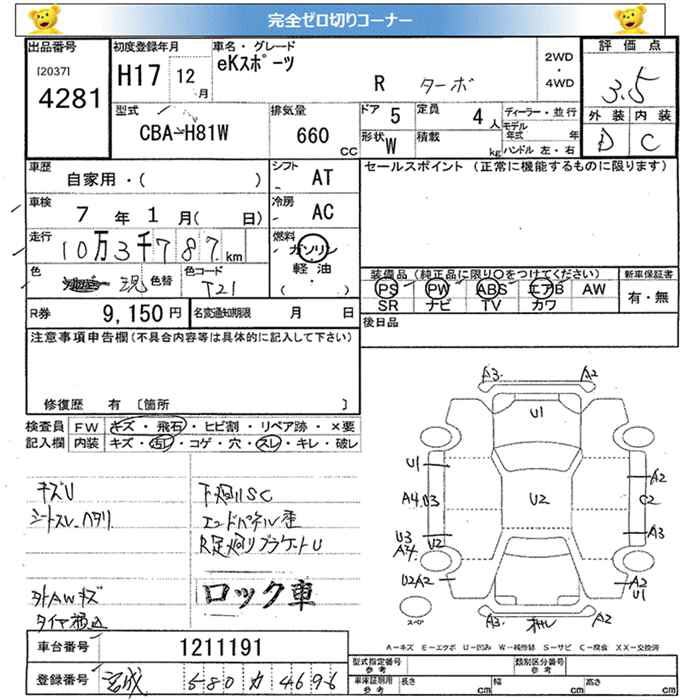 完全ゼロ切りコーナー
出品番号
[2037]
4281
初度登録年月
H17 12月
車名・グレード
eKスポーツ
R ターボ
2WD・4WD
評価点
3.5
外装 内装
D C
型式
CBA-H81W
排気量
660 CC
ドア 5
定員 4人
形状 W
積載 kg
ディーラー・並行
モデル年式 年
ハンドル 左・右
車歴
自家用・( )
シフト AT
車検 7年 1月( 日)
冷房 AC
走行 10万3千787km
燃料 ガソリン
軽油
( ・ )
色
色替
色コード T21
R券 9,150円
名変通知期限 月 日
セールスポイント (正常に機能するものに限ります)
装備品 (純正品に限り○をつけてください)
PS PW ABS エアB AW
SR ナビ TV カワ
新車保証書
有・無
後日品
注意事項申告欄(不具合内容等は具体的に記入して下さい)
修復歴 有 [箇所 ]
検査員記入欄
FW キズ・飛石・ヒビ割・リペア跡・×要
内装 キズ・汚レ・コゲ・穴・スレ・キレ・破レ
キズU
シートスレ、ヘタリ
下廻りSC
エンドパネル歪
R足廻りブラケートU
外AWキズ
タイヤ積込
ロック車
A3. A2
U1
U1
A2
A4.U3
U2
C2
U3
U2
A4.
A3
U2A2
A2
U1
スペア
A3. A2
A-キズ E-エクボ U-凹み W-補修跡 S-サビ C-腐食 XX-交換済
車台番号 1211191
登録番号 580 カ 4696
型式指定番号
参考
類別区分番号
参考
車庫証明用
参考
長さ cm 幅 cm 高さ cm